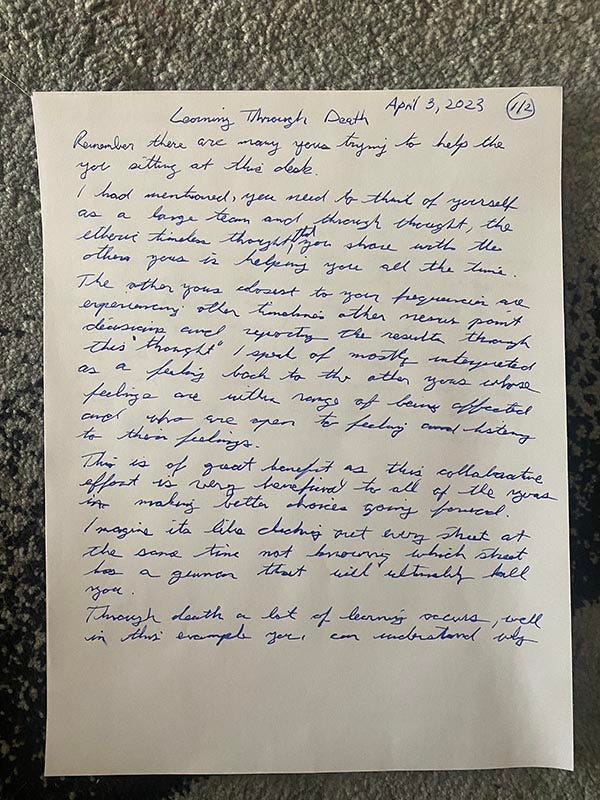 Learning Through Death April 3, 2023 1/2
Remember there are many yous trying to help the
you sitting at this desk.
I had mentioned, you need to think of yourself
as a large team and through thought, the
etheric timeless thought that you share with the
other yous is helping you all the time.
The other yous closest to your frequencies are
experiencing other timelines other nexus point
decisions and reporting the results through
this "thought" I speak of mostly interpreted
as a feeling back to the other yous whose
feelings are within range of being affected
and who are open to feeling and listening
to their feelings.
This is of great benefit as this collaborative
effort is very beneficial to all of the yous
in making better choices going forward.
Imagine its like checking out every street at
the same time not knowing which street
has a gunman that will ultimately kill
you.
Through death a lot of learning occurs, well
in this example you, can understand why